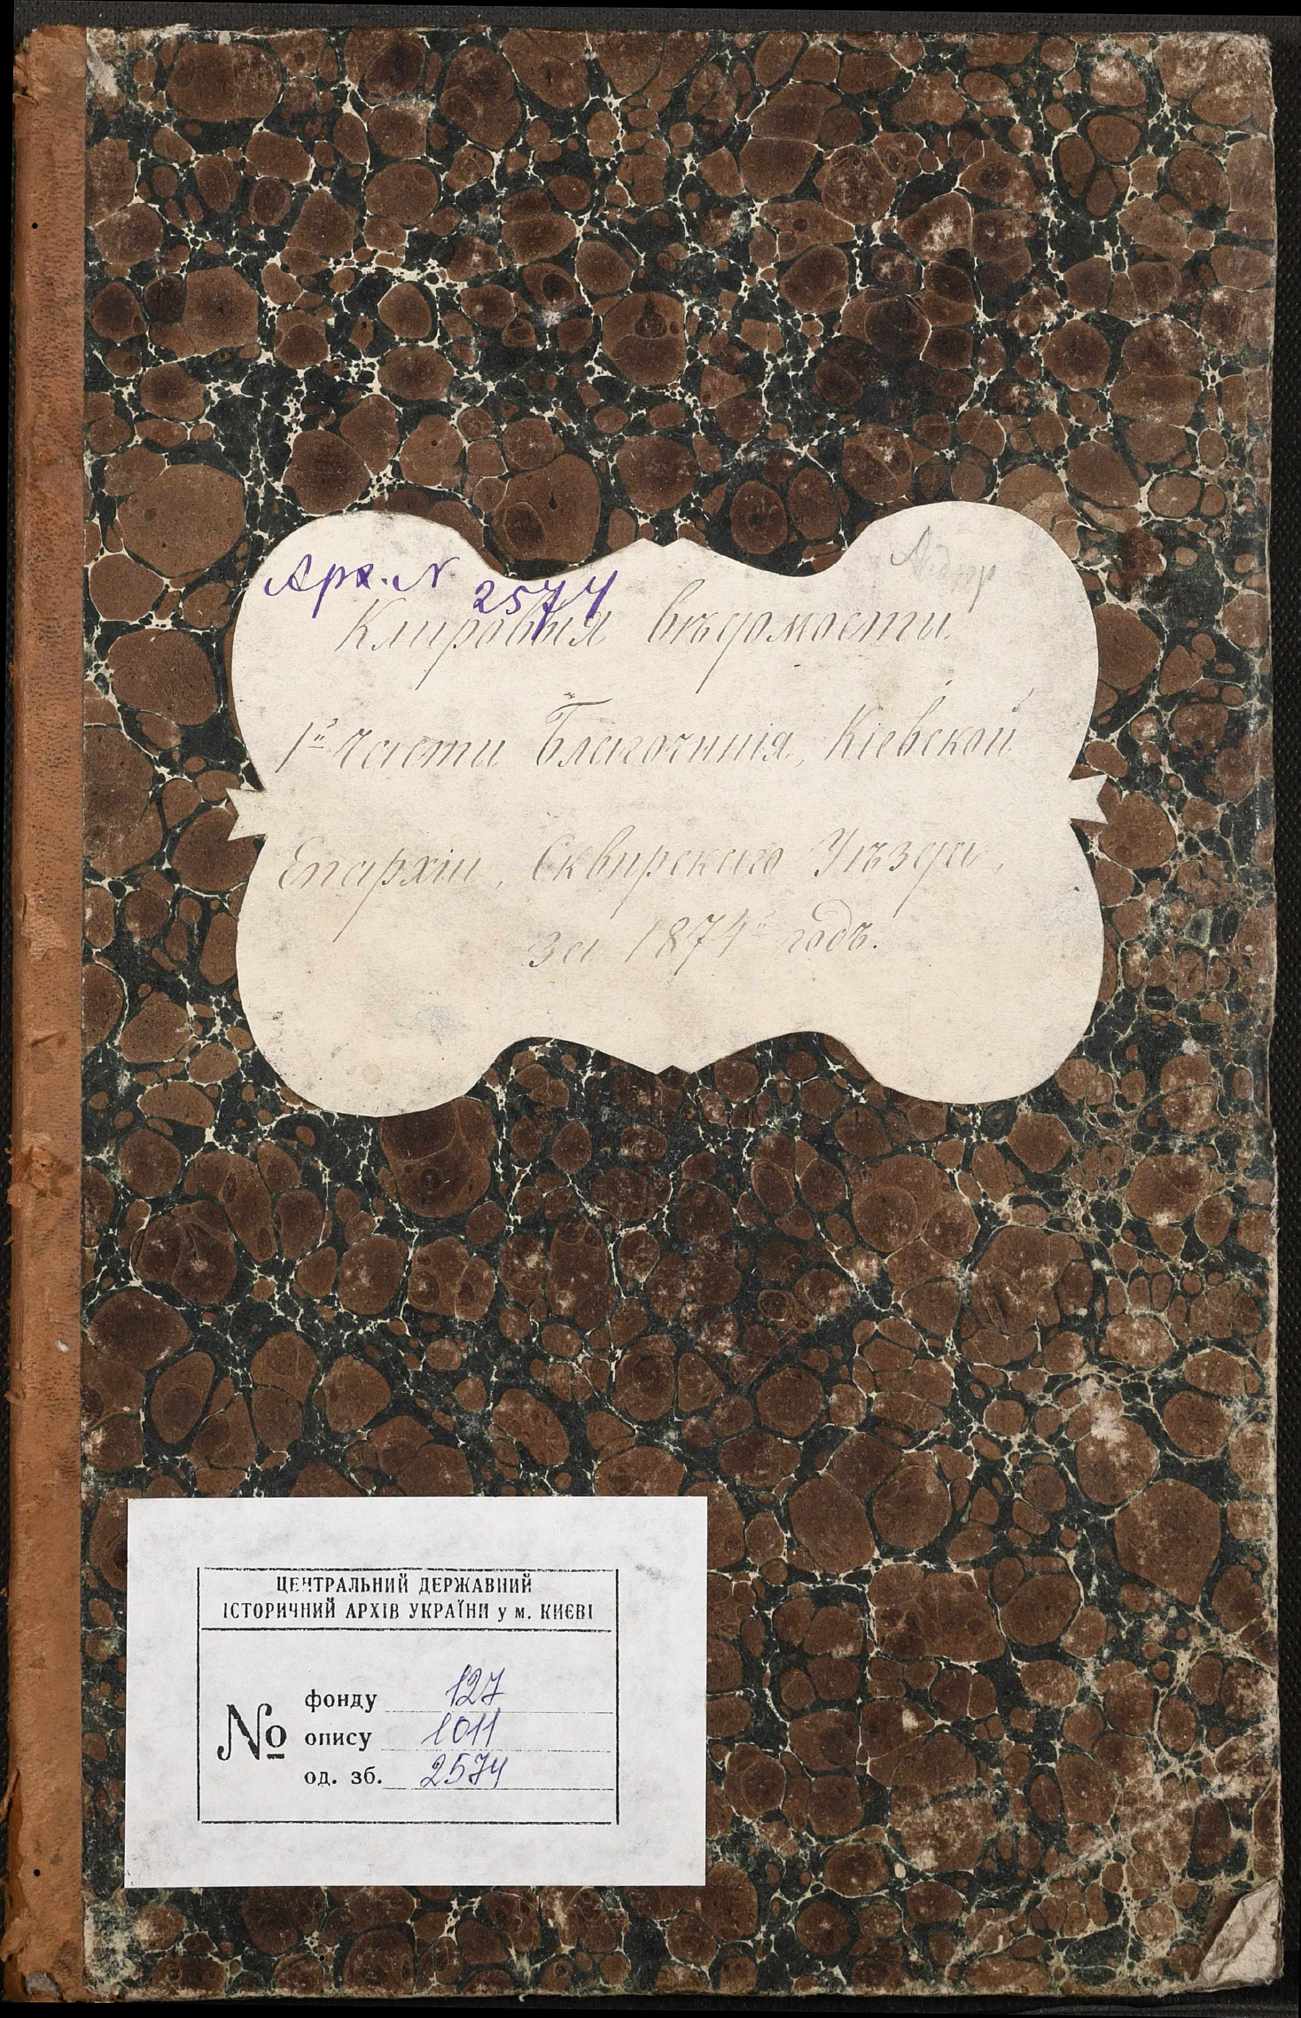 Арх. N 2574
Клировыя вѣдомости
1й части Благочинія, Кіевской
Епархіи, Сквирскаго Уѣзда,
за 1874й годъ.
ЦЕНТРАЛЬНИЙ ДЕРЖАВНИЙ
ІСТОРИЧНИЙ АРХІВ УКРАЇНИ у м. КИЄВІ
№
фонду 127
опису 1011
од. зб. 2574